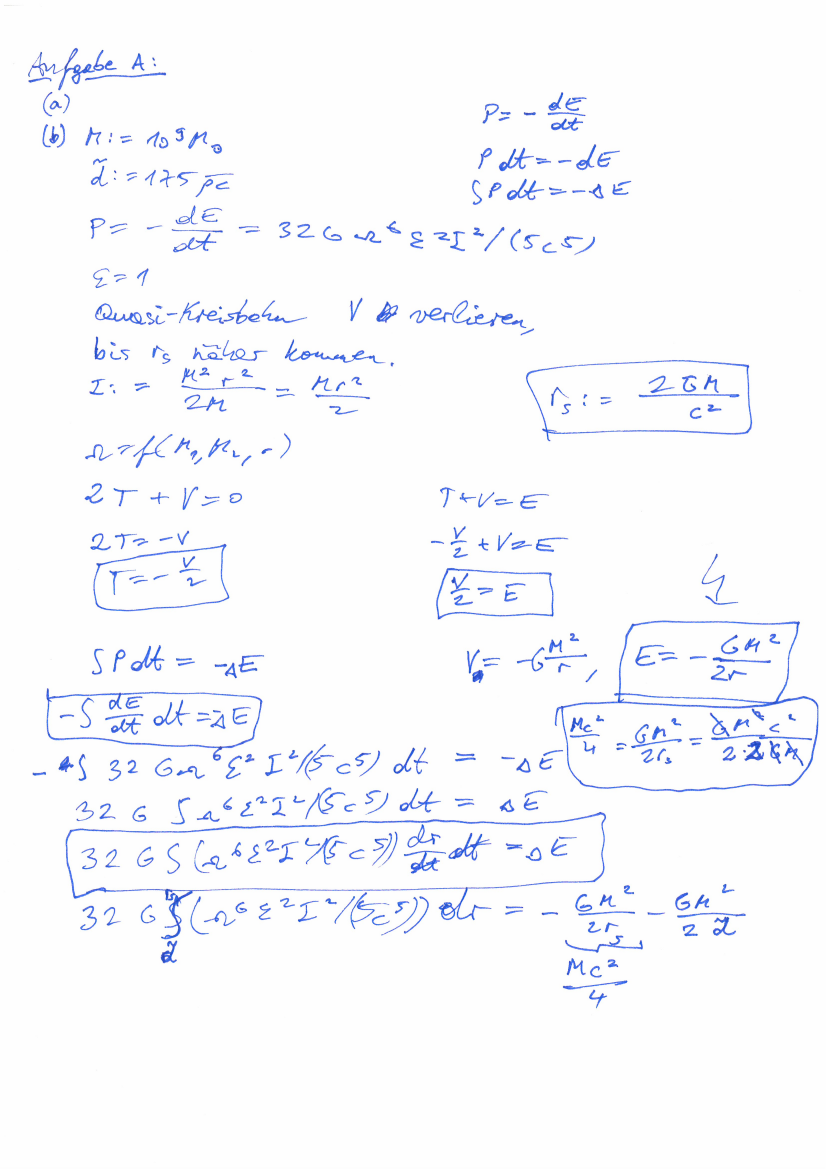 Aufgabe A:
(a)
P = - dE/dt
(b) M := 10⁹ M₀
P dt = - dE
d̃ := 175 pc
∫P dt = - ΔE
P = - dE/dt = 32 G Ω⁶ ε² I² / (5c5)
ε = 1
Quasi-Kreisbahn V verlieren,
bis rₛ näher kommen.
I: = M² r² / 2M = Mr² / 2
rₛ := 2GM / c²
Ω = f(M₁, M₂, -)
2T + V = 0
T + V = E
2T = -V
- V/2 + V = E
T = - V/2
V/2 = E
∫P dt = -ΔE
V = -G M²/r , E = - GM²/2r
-∫ dE/dt dt = -ΔE
Mc²/4 = GM²/2rₛ = GM²c²/2·2GM
- ∫ 32 G Ω⁶ ε² I² /(5c5) dt = -ΔE
32 G ∫ Ω⁶ ε² I² /(5c5) dt = ΔE
32 G ∫ (Ω⁶ ε² I² /(5c5)) dr/dt dt = ΔE
32 G ∫ (Ω⁶ ε² I² /(5c5)) dr = - GM²/2rₛ - GM²/2d̃
d̃
Mc²/4